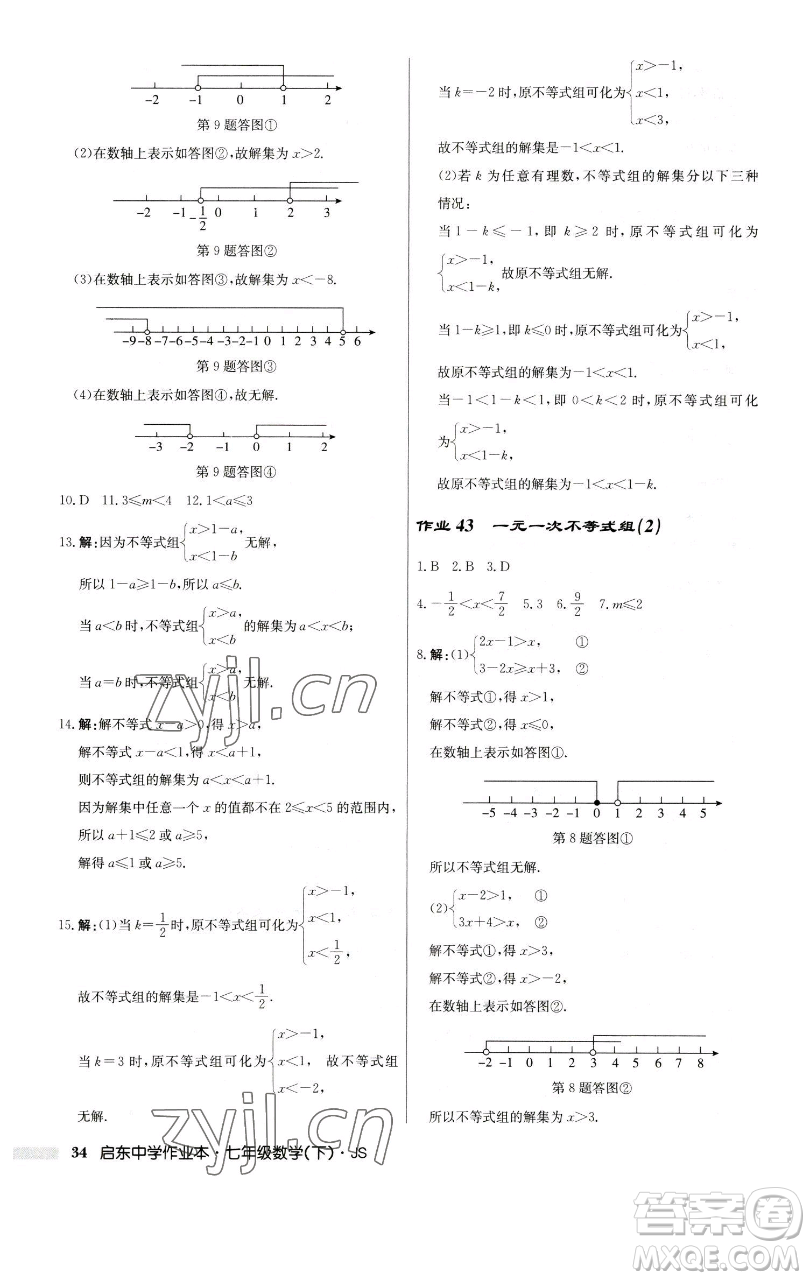 -2 -1 0 1 2
第9题答图①
(2)在数轴上表示如答图②,故解集为x>2.
-2 -1 -1/2 0 1 2 3
第9题答图②
(3)在数轴上表示如答图③,故解集为x<-8.
-9-8-7-6-5-4-3-2-1 0 1 2 3 4 5 6
第9题答图③
(4)在数轴上表示如答图④,故无解.
-3 -2 -1 0 1 2
第9题答图④
10. D 11. 3≤m<4 12. 1<a≤3
13. 解:因为不等式组{x>1-a, x<1-b 无解,
所以1-a≥1-b,所以a≤b.
当a<b时,不等式组{x>a, x<b 的解集为a<x<b;
当a=b时,不等式组{x>a, x<b 无解.
14. 解:解不等式x-a>0,得x>a,
解不等式x-a<1,得x<a+1,
则不等式组的解集为a<x<a+1.
因为解集中任意一个x的值都不在2≤x<5的范围内,
所以a+1≤2或a≥5,
解得a≤1或a≥5.
15. 解:(1)当k=1/2时,原不等式组可化为{x>-1, x<1, x<1/2,
故不等式组的解集是-1<x<1/2.
当k=3时,原不等式组可化为{x>-1, x<1, x<-2, 故不等式组
无解.
34 启东中学作业本·七年级数学(下)·JS
当k=-2时,原不等式组可化为{x>-1, x<1, x<3,
故不等式组的解集是-1<x<1.
(2)若k为任意有理数,不等式组的解集分以下三种
情况:
当1-k≤-1,即k≥2时,原不等式组可化为
{x>-1, x<1-k, 故原不等式组无解.
当1-k≥1,即k≤0时,原不等式组可化为{x>-1, x<1,
故原不等式组的解集为-1<x<1.
当-1<1-k<1,即0<k<2时,原不等式组可化
为{x>-1, x<1-k,
故原不等式组的解集为-1<x<1-k.
作业43 一元一次不等式组(2)
1. B 2. B 3. D
4. -1/2<x<7/2 5. 3 6. 9/2 7. m≤2
8. 解:(1){2x-1>x, ① 3-2x≥x+3, ②
解不等式①,得x>1,
解不等式②,得x≤0,
在数轴上表示如答图①.
-5 -4 -3 -2 -1 0 1 2 3 4 5
第8题答图①
所以不等式组无解.
(2){x-2>1, ① 3x+4>x, ②
解不等式①,得x>3,
解不等式②,得x>-2,
在数轴上表示如答图②.
-2 -1 0 1 2 3 4 5 6 7 8
第8题答图②
所以不等式组的解集为x>3.
zyjl.cn
zyjl.cn
答案卷
MXQE.COM